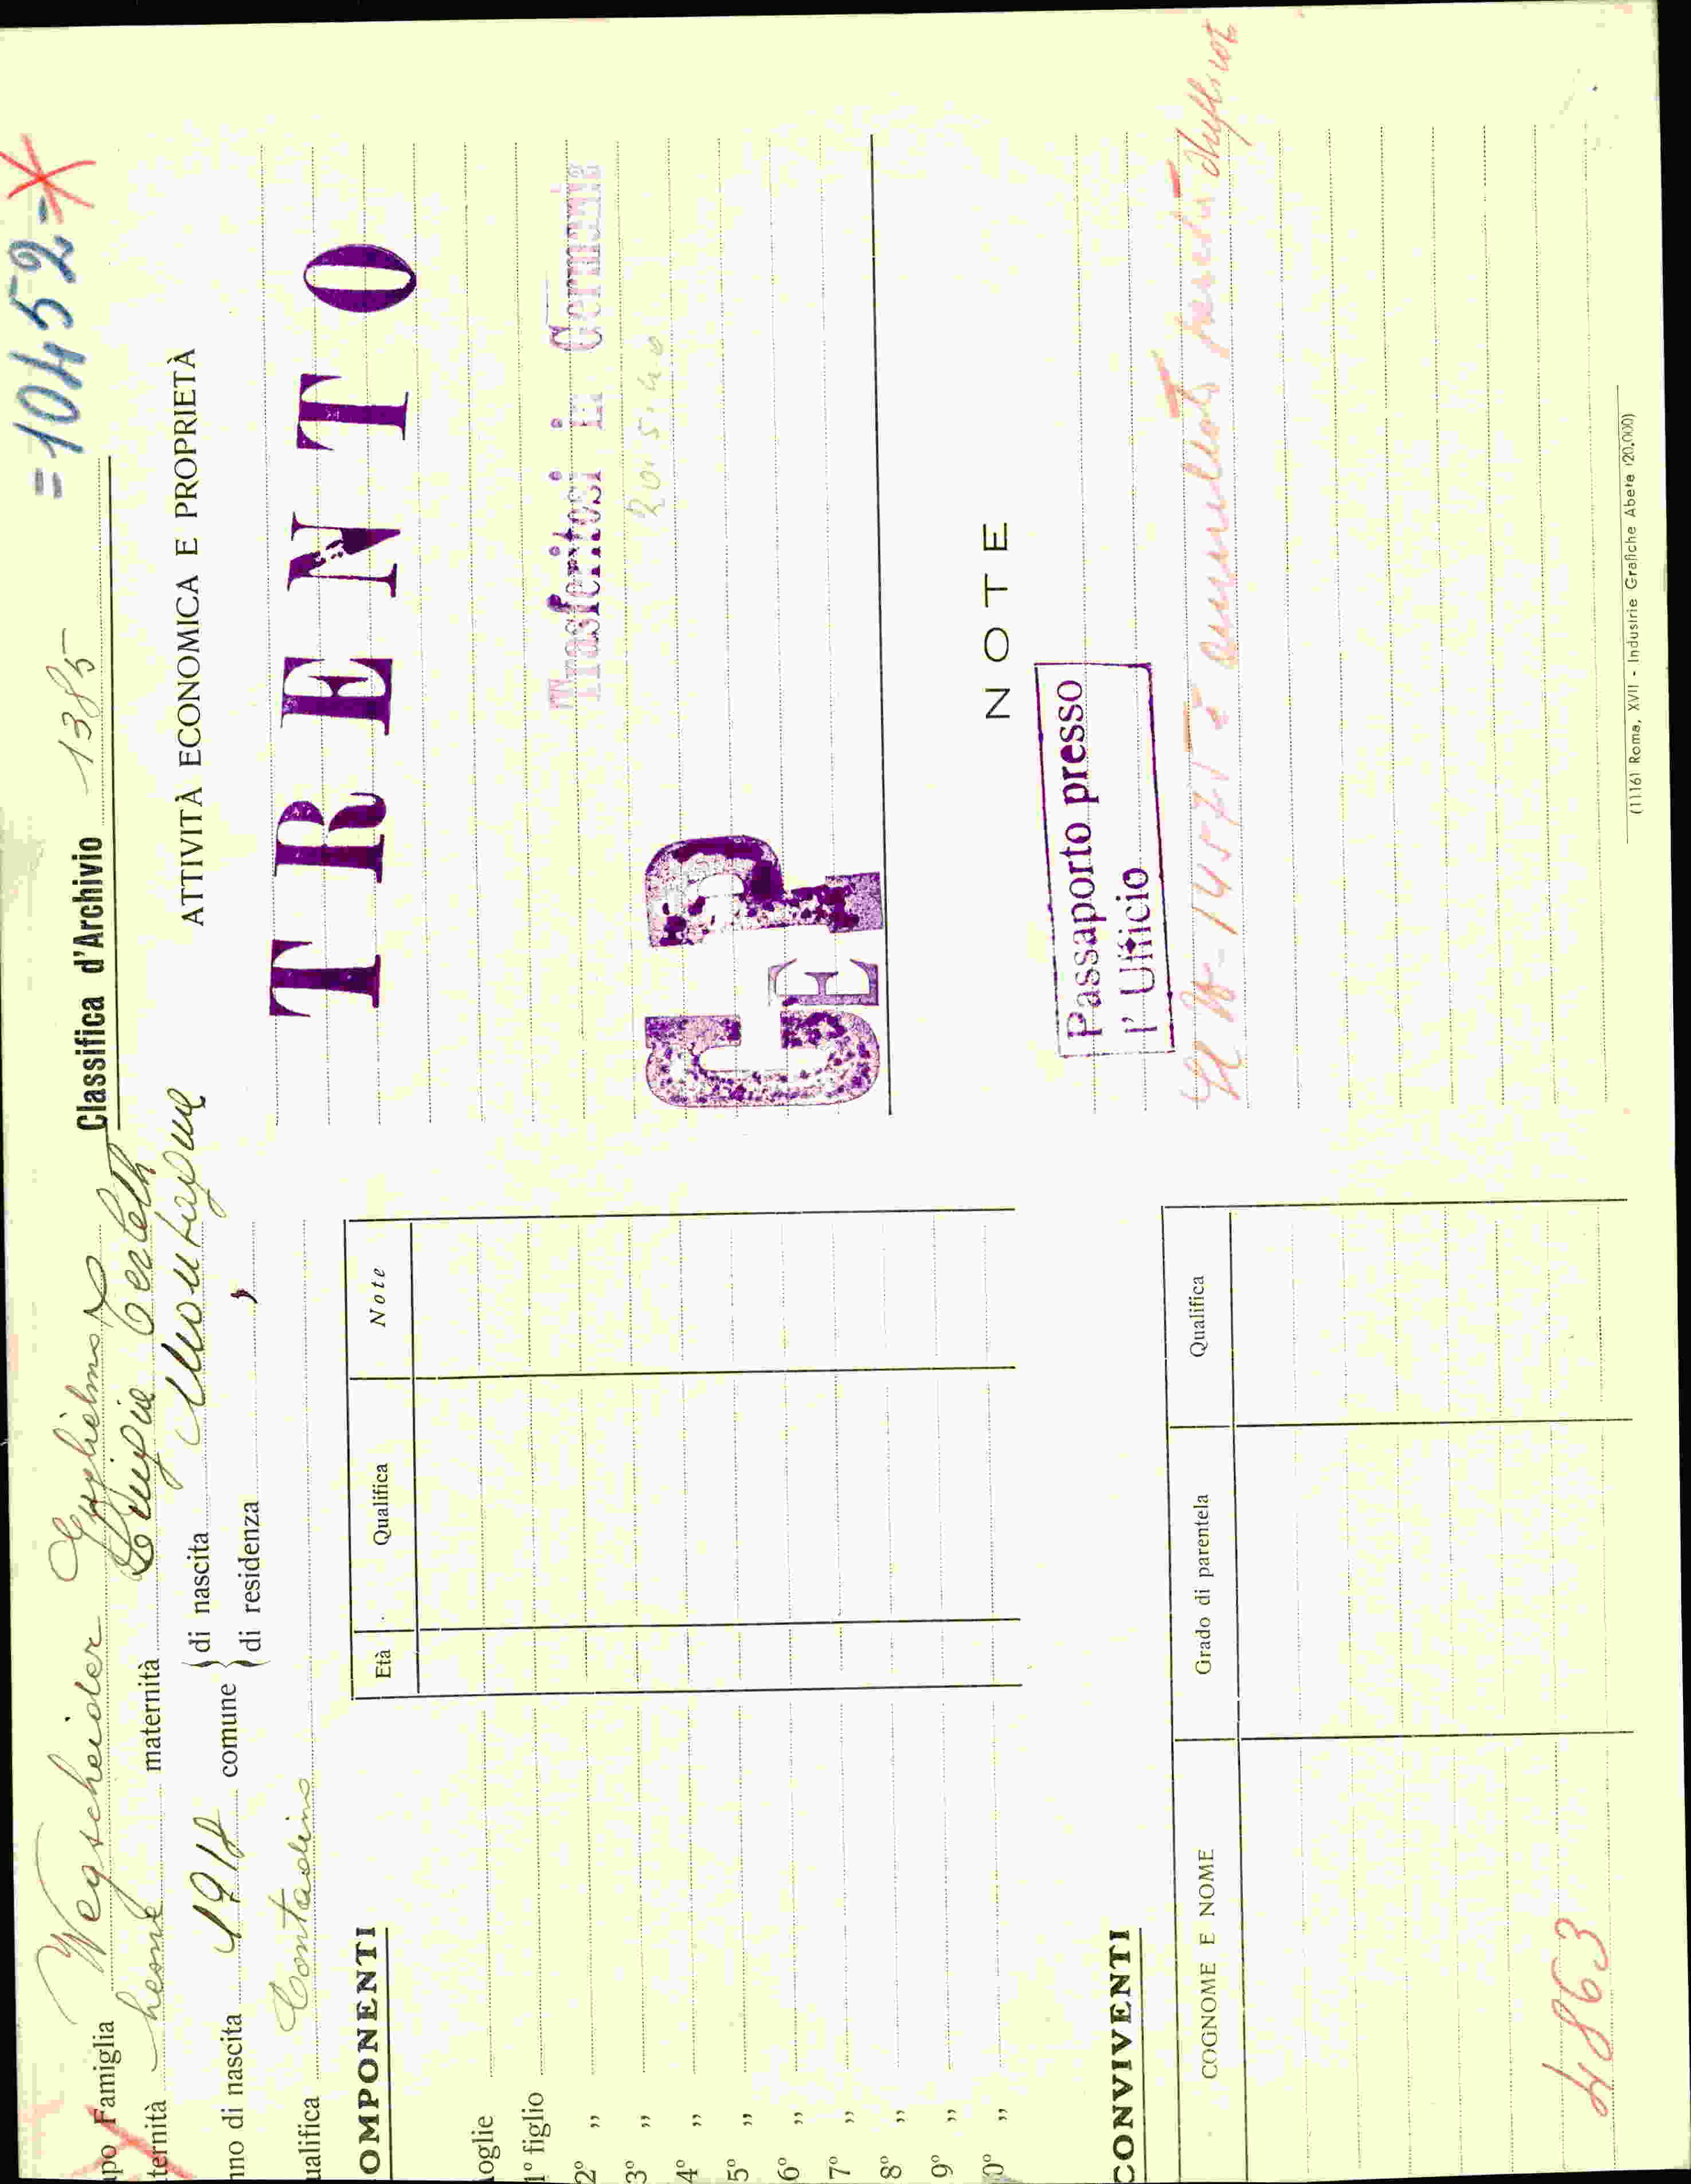 =10452=
Classifica d'Archivio 1385
apo Famiglia Wegscheider Guglielmo
ternità Leone maternità Luigia Terleth
nno di nascita 1918 comune { di nascita Montagna
{ di residenza "
ualifica Contadino
OMPONENTI
Età Qualifica Note
oglie
1° figlio
2° ”
3° ”
4° ”
5° ”
6° ”
7° ”
8° ”
9° ”
0° ”
CONVIVENTI
COGNOME E NOME Grado di parentela Qualifica
4863
ATTIVITÀ ECONOMICA E PROPRIETÀ
TRENTO
Trasferitosi in Germania
20.5.40
GE
NOTE
Passaporto presso
l' Ufficio
annullato
(11161 Roma, XVII - Industrie Grafiche Abete (20.000)